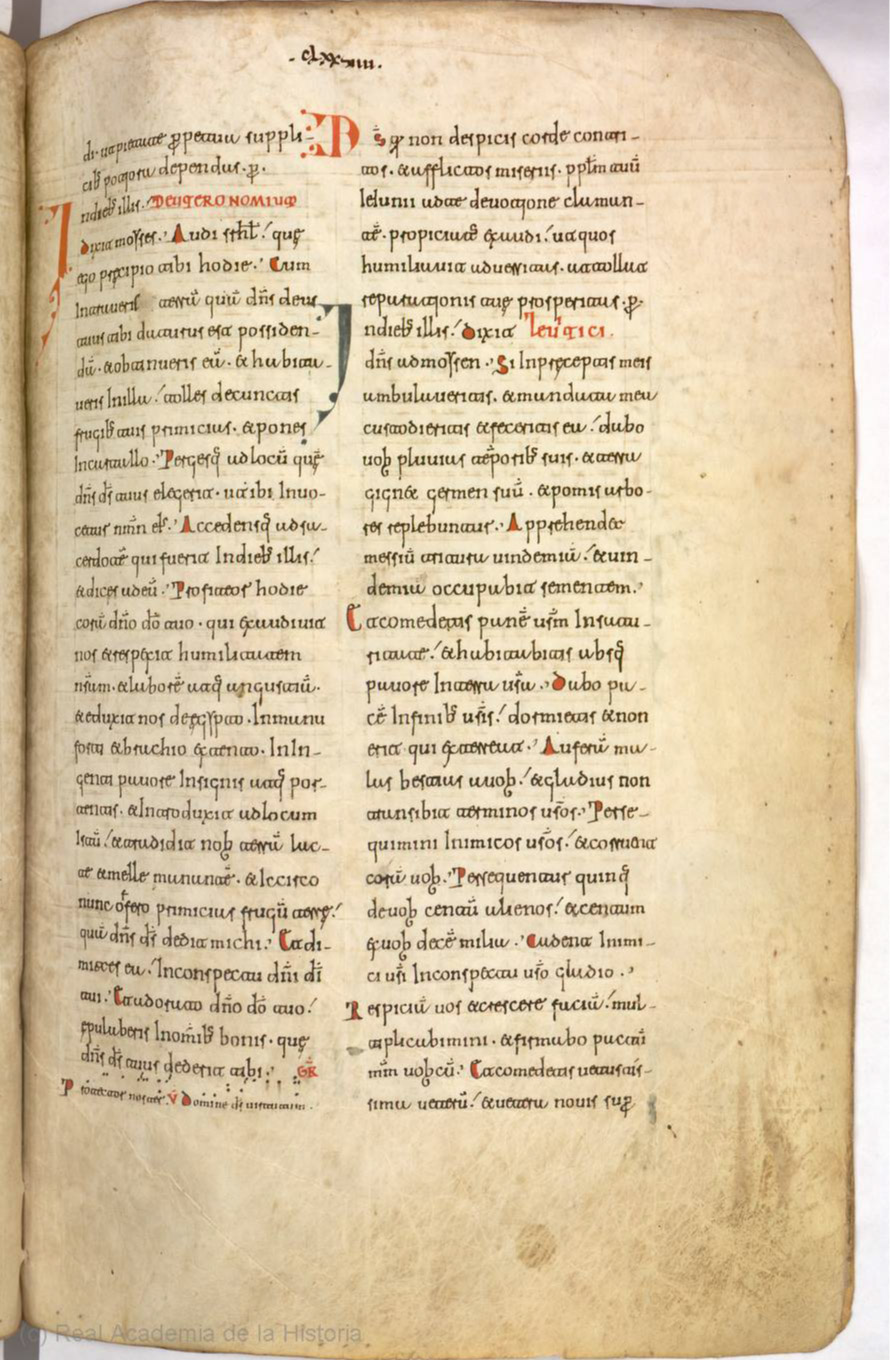 ·clxxiiii·
di. ut pietate ꝑpetuu suppli
cib; potiora dependat. ꝑ.
DEUTERONOMIUM
Indieb; illis.
dixit moẏses. Audi isrhl! quę
ego pręcipio tibi hodie. Cum
Intraueris terrā quā dn̄s deus
tuus tibi daturus est possiden-
dā. & obtinueris eā. & habitau-
ueris In illa! tolles de cunctis
frugib; tuis primicias. & pones
In cartallo. Pergesq; ad locū quē
dn̄s ds̄ tuus elegerit. ut ibi Inuo-
cetur nm̄n eľ. Accedensq; ad sa-
cerdotē qui fuerit Indieb; illis!
& dices ad eū. Profiteor hodie
corā dn̄o dō tuo. qui exaudiuit
nos & respexit humilitatem
nr̄am. & laborē atq; angustiā.
& eduxit nos de ęgẏpto. In manu
forti & brachio extento. In In-
genti pauore In signis atq; por-
tentis. & Introduxit ad locum
Istū! & tradidit nob terrā lac-
te & melle manantē. & Iccirco
nunc offero primicias frugū terrę!
quā dn̄s ds̄ dedit michi. Et di-
mittes ea! In conspectu dn̄i dī
tui. Et adorato dn̄o dō tuo!
epulaberis In om̄ib; bonis. quę
dn̄s ds̄ tuus dederit tibi. GR̄
Protector noster. V̄ Domine ds̄ uirtutum.
Ds̄ q non despicis corde contri-
tos. & afflictos miseriis. ppl̄m tuū
Ieiunii ad te deuotione claman-
tē. propiciatꝰ exaudi! ut quos
humiliauit aduersitas. attollat
reparationis tuę prosperitas. ꝑ.
Indieb; illis! dixit leuitici.
dn̄s ad moẏsen. Si In pręceptis meis
ambulaueritis. & mandata mea
custodieritis & feceritis ea! dabo
uob pluuias tēporib; suis. & terra
gignet germen suū. & pomis arbo-
res replebuntur. Apprehendet
messiū tritura uindemiā! & uin-
demia occupabit sementem.
Et comedetis panē ur̄m In satu-
ritate! & habitabitis absq;
pauore In terra ur̄a. Dabo pa-
cē In finib; ur̄is! dormietis & non
erit qui exterreat. Auferā ma-
las bestias a uob! & gladius non
transibit terminos ur̄os. Perse-
quimini Inimicos ur̄os! & corruent
corā uob. Persequentur quinq;
de uob centū alienos! & centum
ex uob decē milia. Cadent Inimi-
ci ur̄i In conspectu ur̄o gladio.
Respiciā uos & crescere faciā! mul-
tiplicabimini. & firmabo pactū
mm̄ uobcū. Et comedetis uetustis-
sima ueterū! & uetera nouis suꝑ